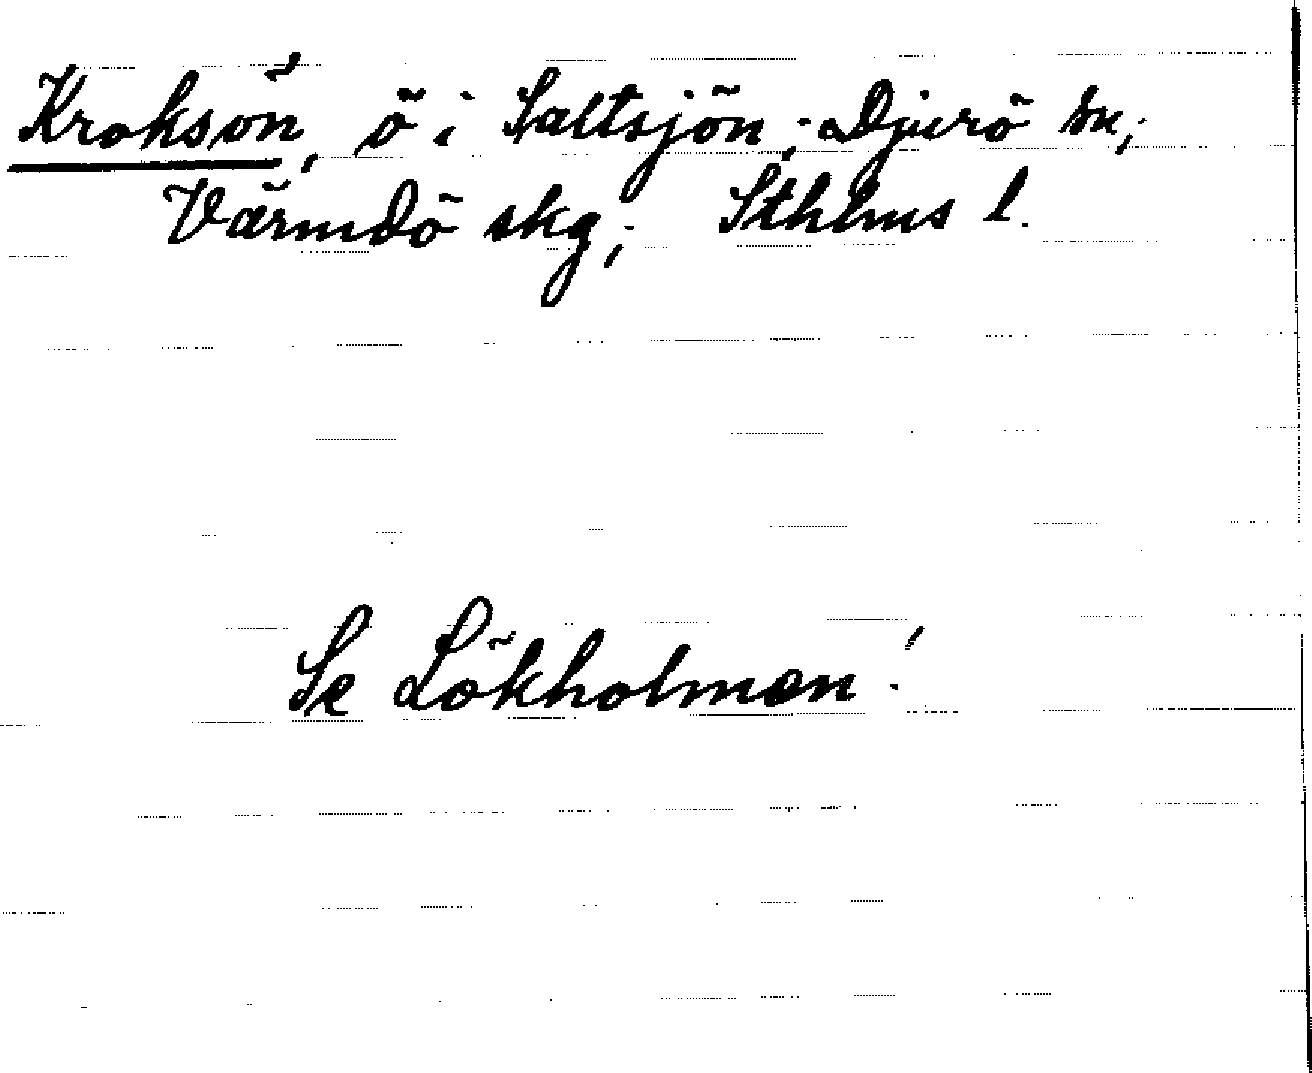 Kroksön, ö i Saltsjön; Djurö sn;
Värmdö skg; Sthlms l.
Se Lökholmen!